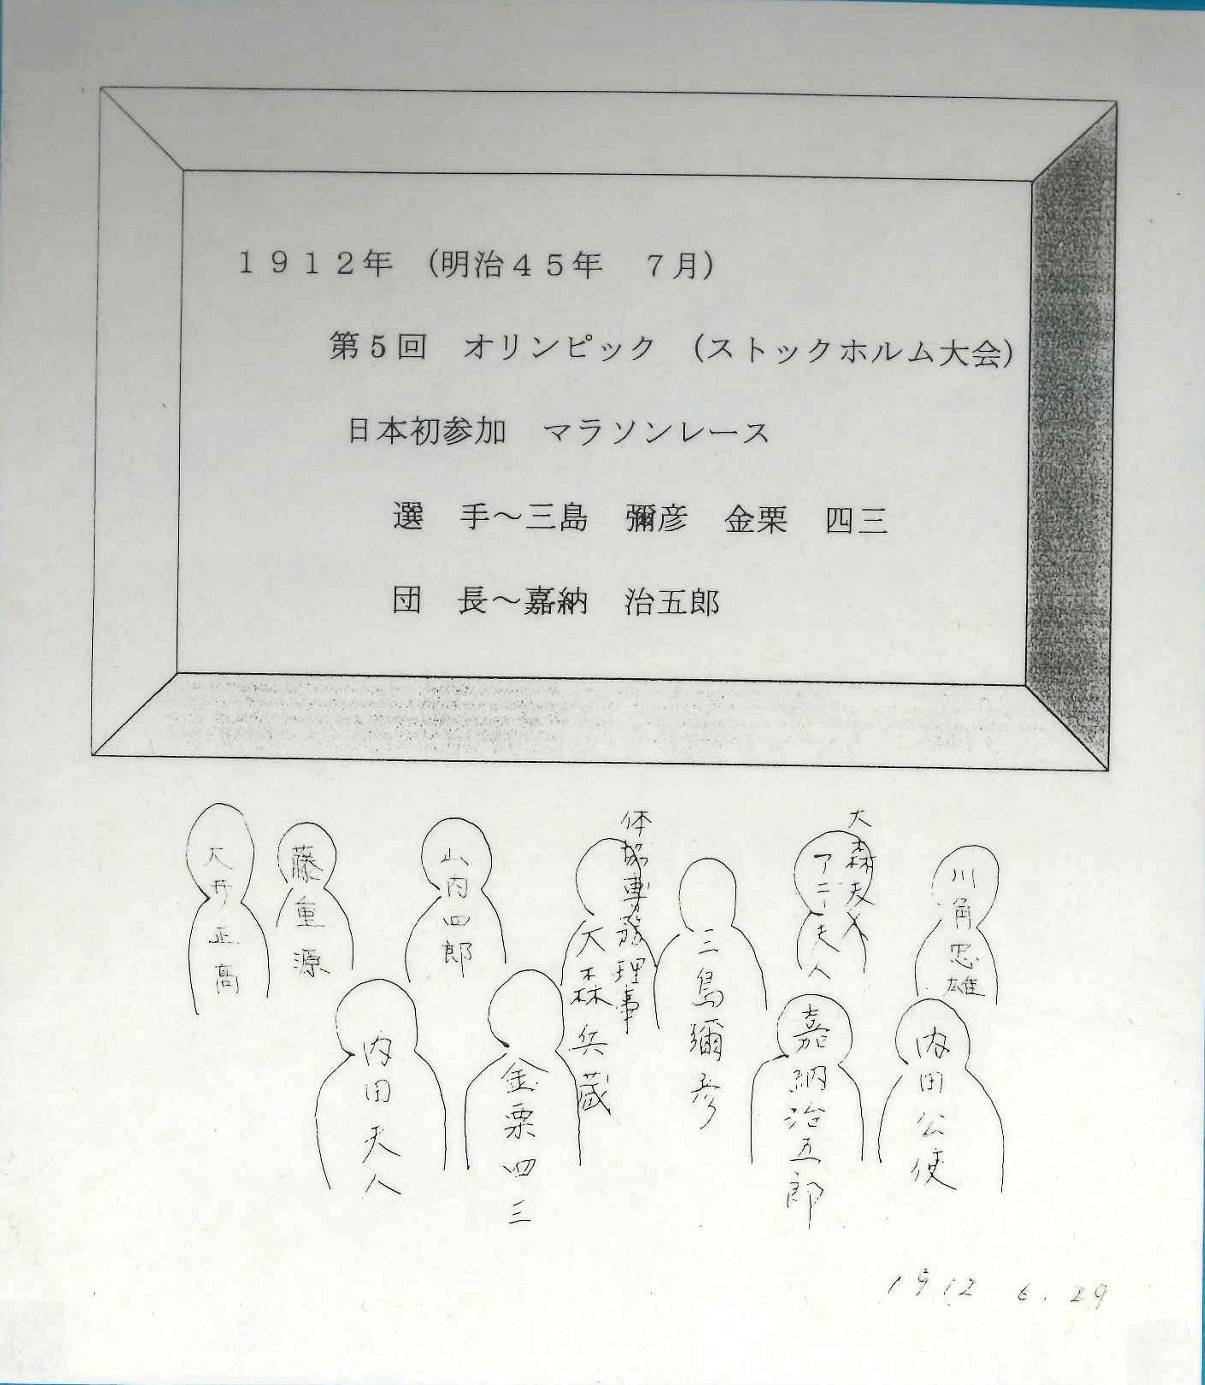 1912年　(明治45年　7月)
第5回　オリンピック　(ストックホルム大会)
日本初参加　マラソンレース
選　手～三島　彌彦　金栗　四三
団　長～嘉納　治五郎
大井正高
藤重源
山内四郎
体協専務理事
大森兵蔵
三島彌彦
大森夫人
アニー夫人
川角忠雄
内田夫人
金栗四三
嘉納治五郎
内田公使
1912 6.29